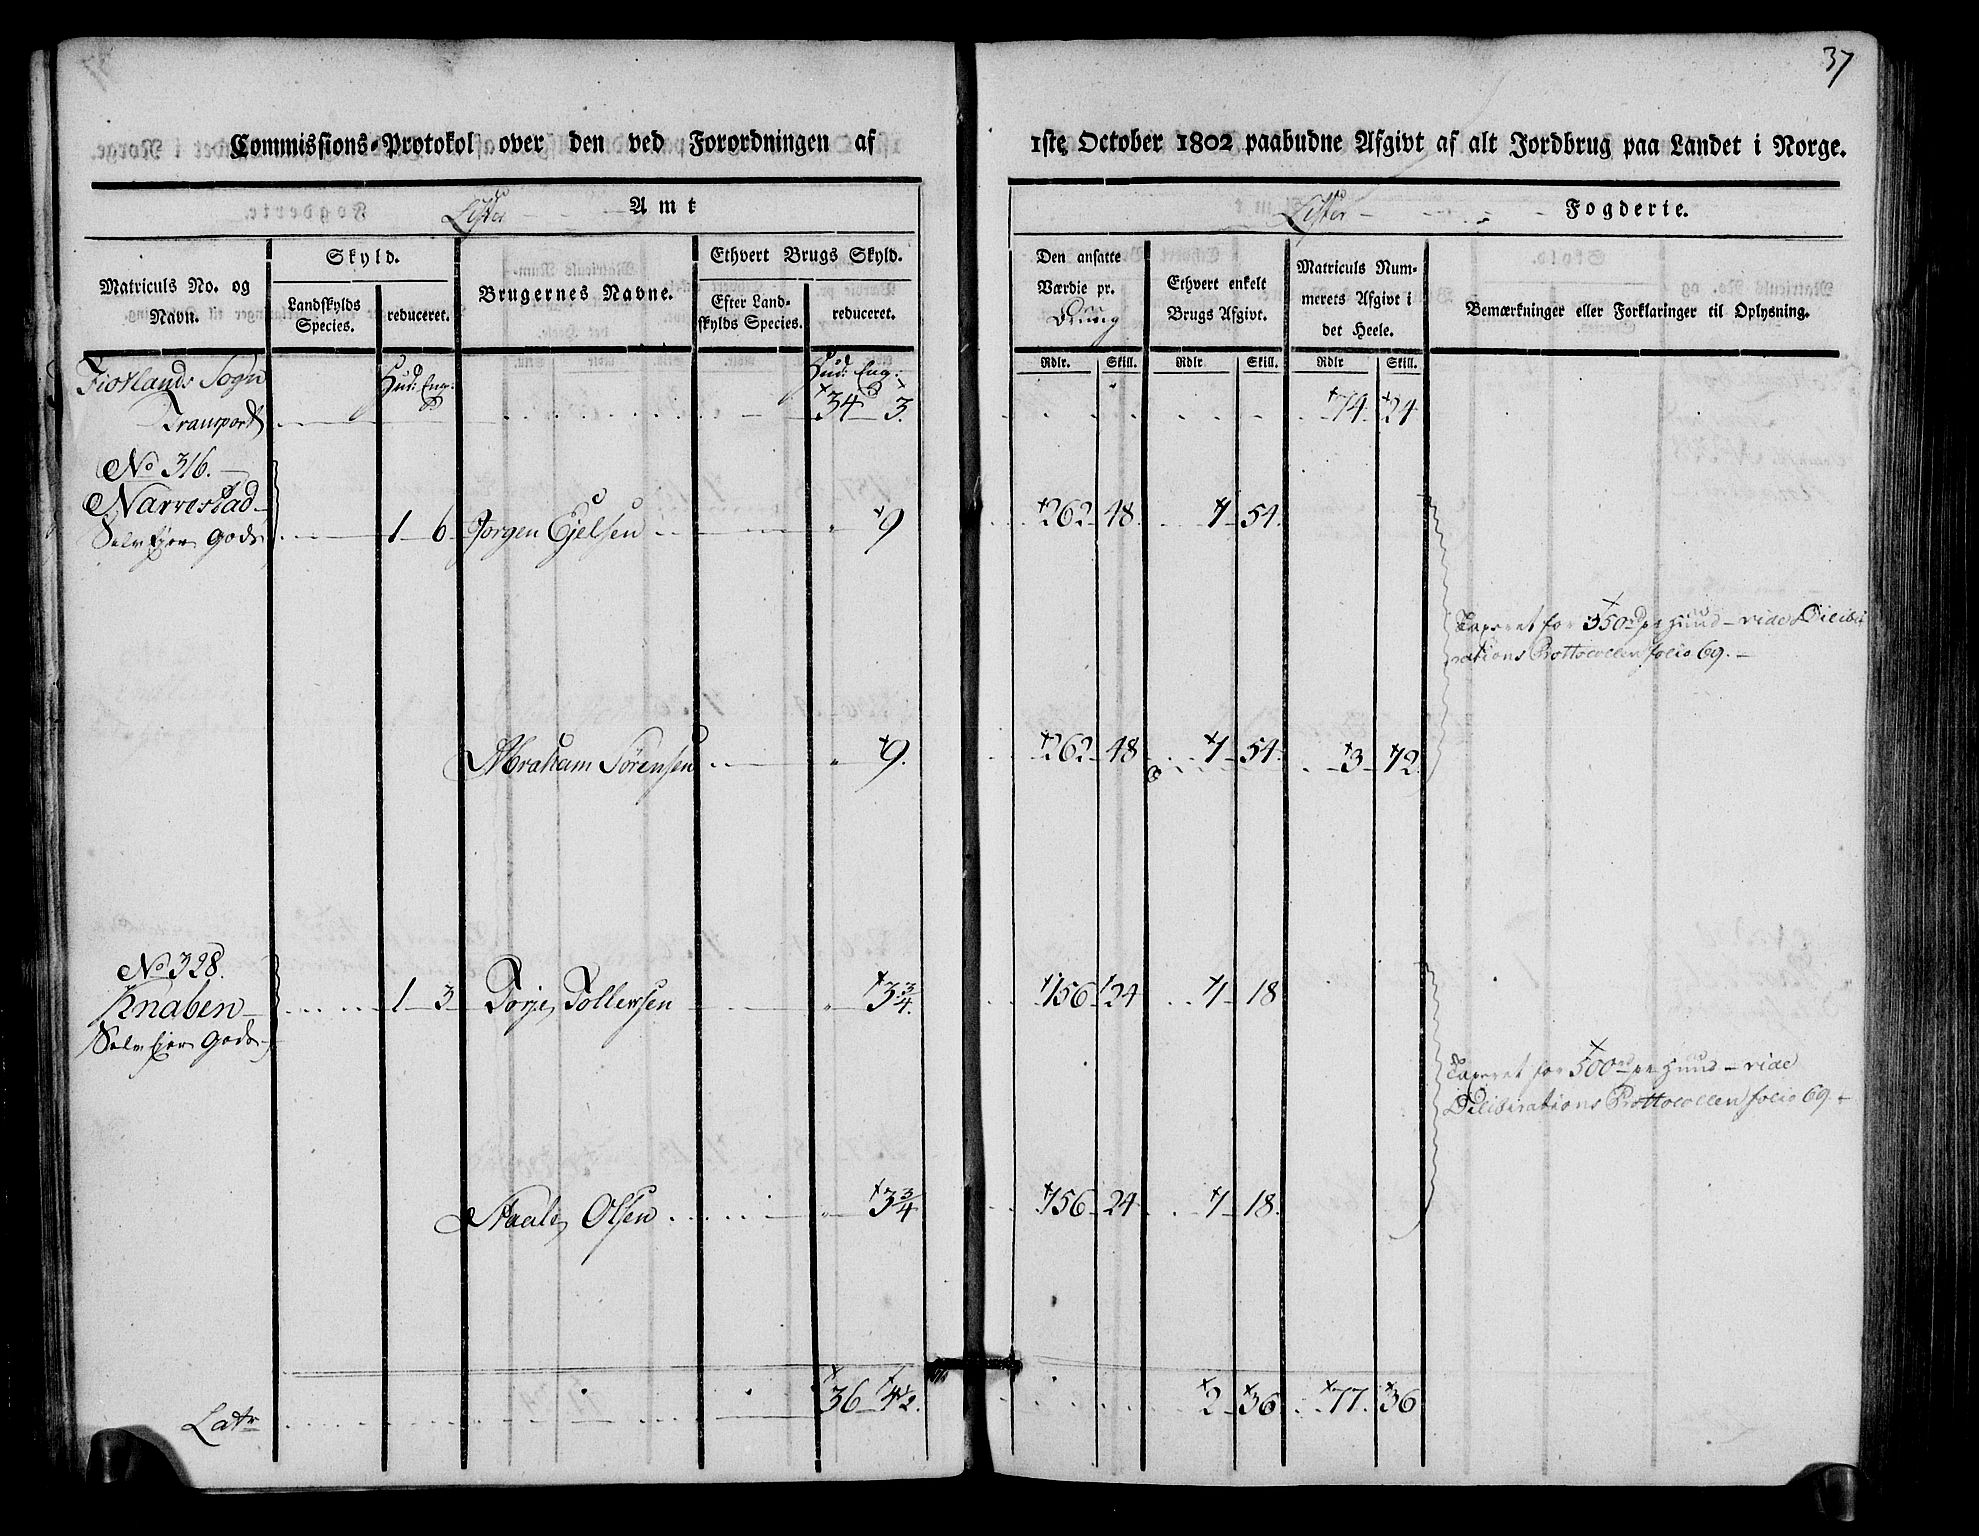 37
Commissions-Protokol over den ved Forordningen af
1ste October 1802 paabudne Afgivt af alt Jordbrug paa Landet i Norge.
Lister Amt
Lister Fogderie.
Matriculs No. og Navn.
Skyld.
Landskylds Species.
reduceret.
Brugernes Navne.
Ethvert Brugs Skyld.
Efter Landskylds Species.
reduceret.
Den ansatte Værdie pr.
Ethvert enkelt Brugs Afgivt.
Matriculs Nummerets Afgivt i det Heele.
Bemærkninger eller Forklaringer til Oplysning.
Rdlr. Skill. Rdlr Skill. Rdlr Skill.
Fiotlands Sogn Hud: Eng: Hud: Eng:
Transport 34 3. 74 24
No 316.
Narvestad
Selv Ejer Gods 1 6 Jorgen Ejelsen " 9 262 48 1 54.
Taxeret for 350 rd pr Huud - vide Delibe
rations Prottocollen folio 69.
Abraham Sørensen " 9. 262 48 1 54 3 12
No 328.
Knaben 1 3 Torje Tollevsen " 3 3/4. 156 24 1 18
Selv Ejer Gods
Taxeret for 500 rd pr Huud - vide
Deliberations Prottocollen folio 69.
Staale Olsen " 3 3/4 156 24 1 18.
Latr 36 4 1/2. 2 36 77. 36